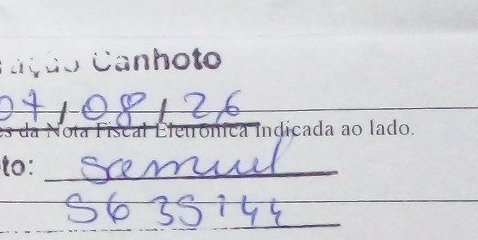 ação Canhoto
07/08/26
es da Nota Fiscal Eletrônica indicada ao lado.
to: Samuel
5635144